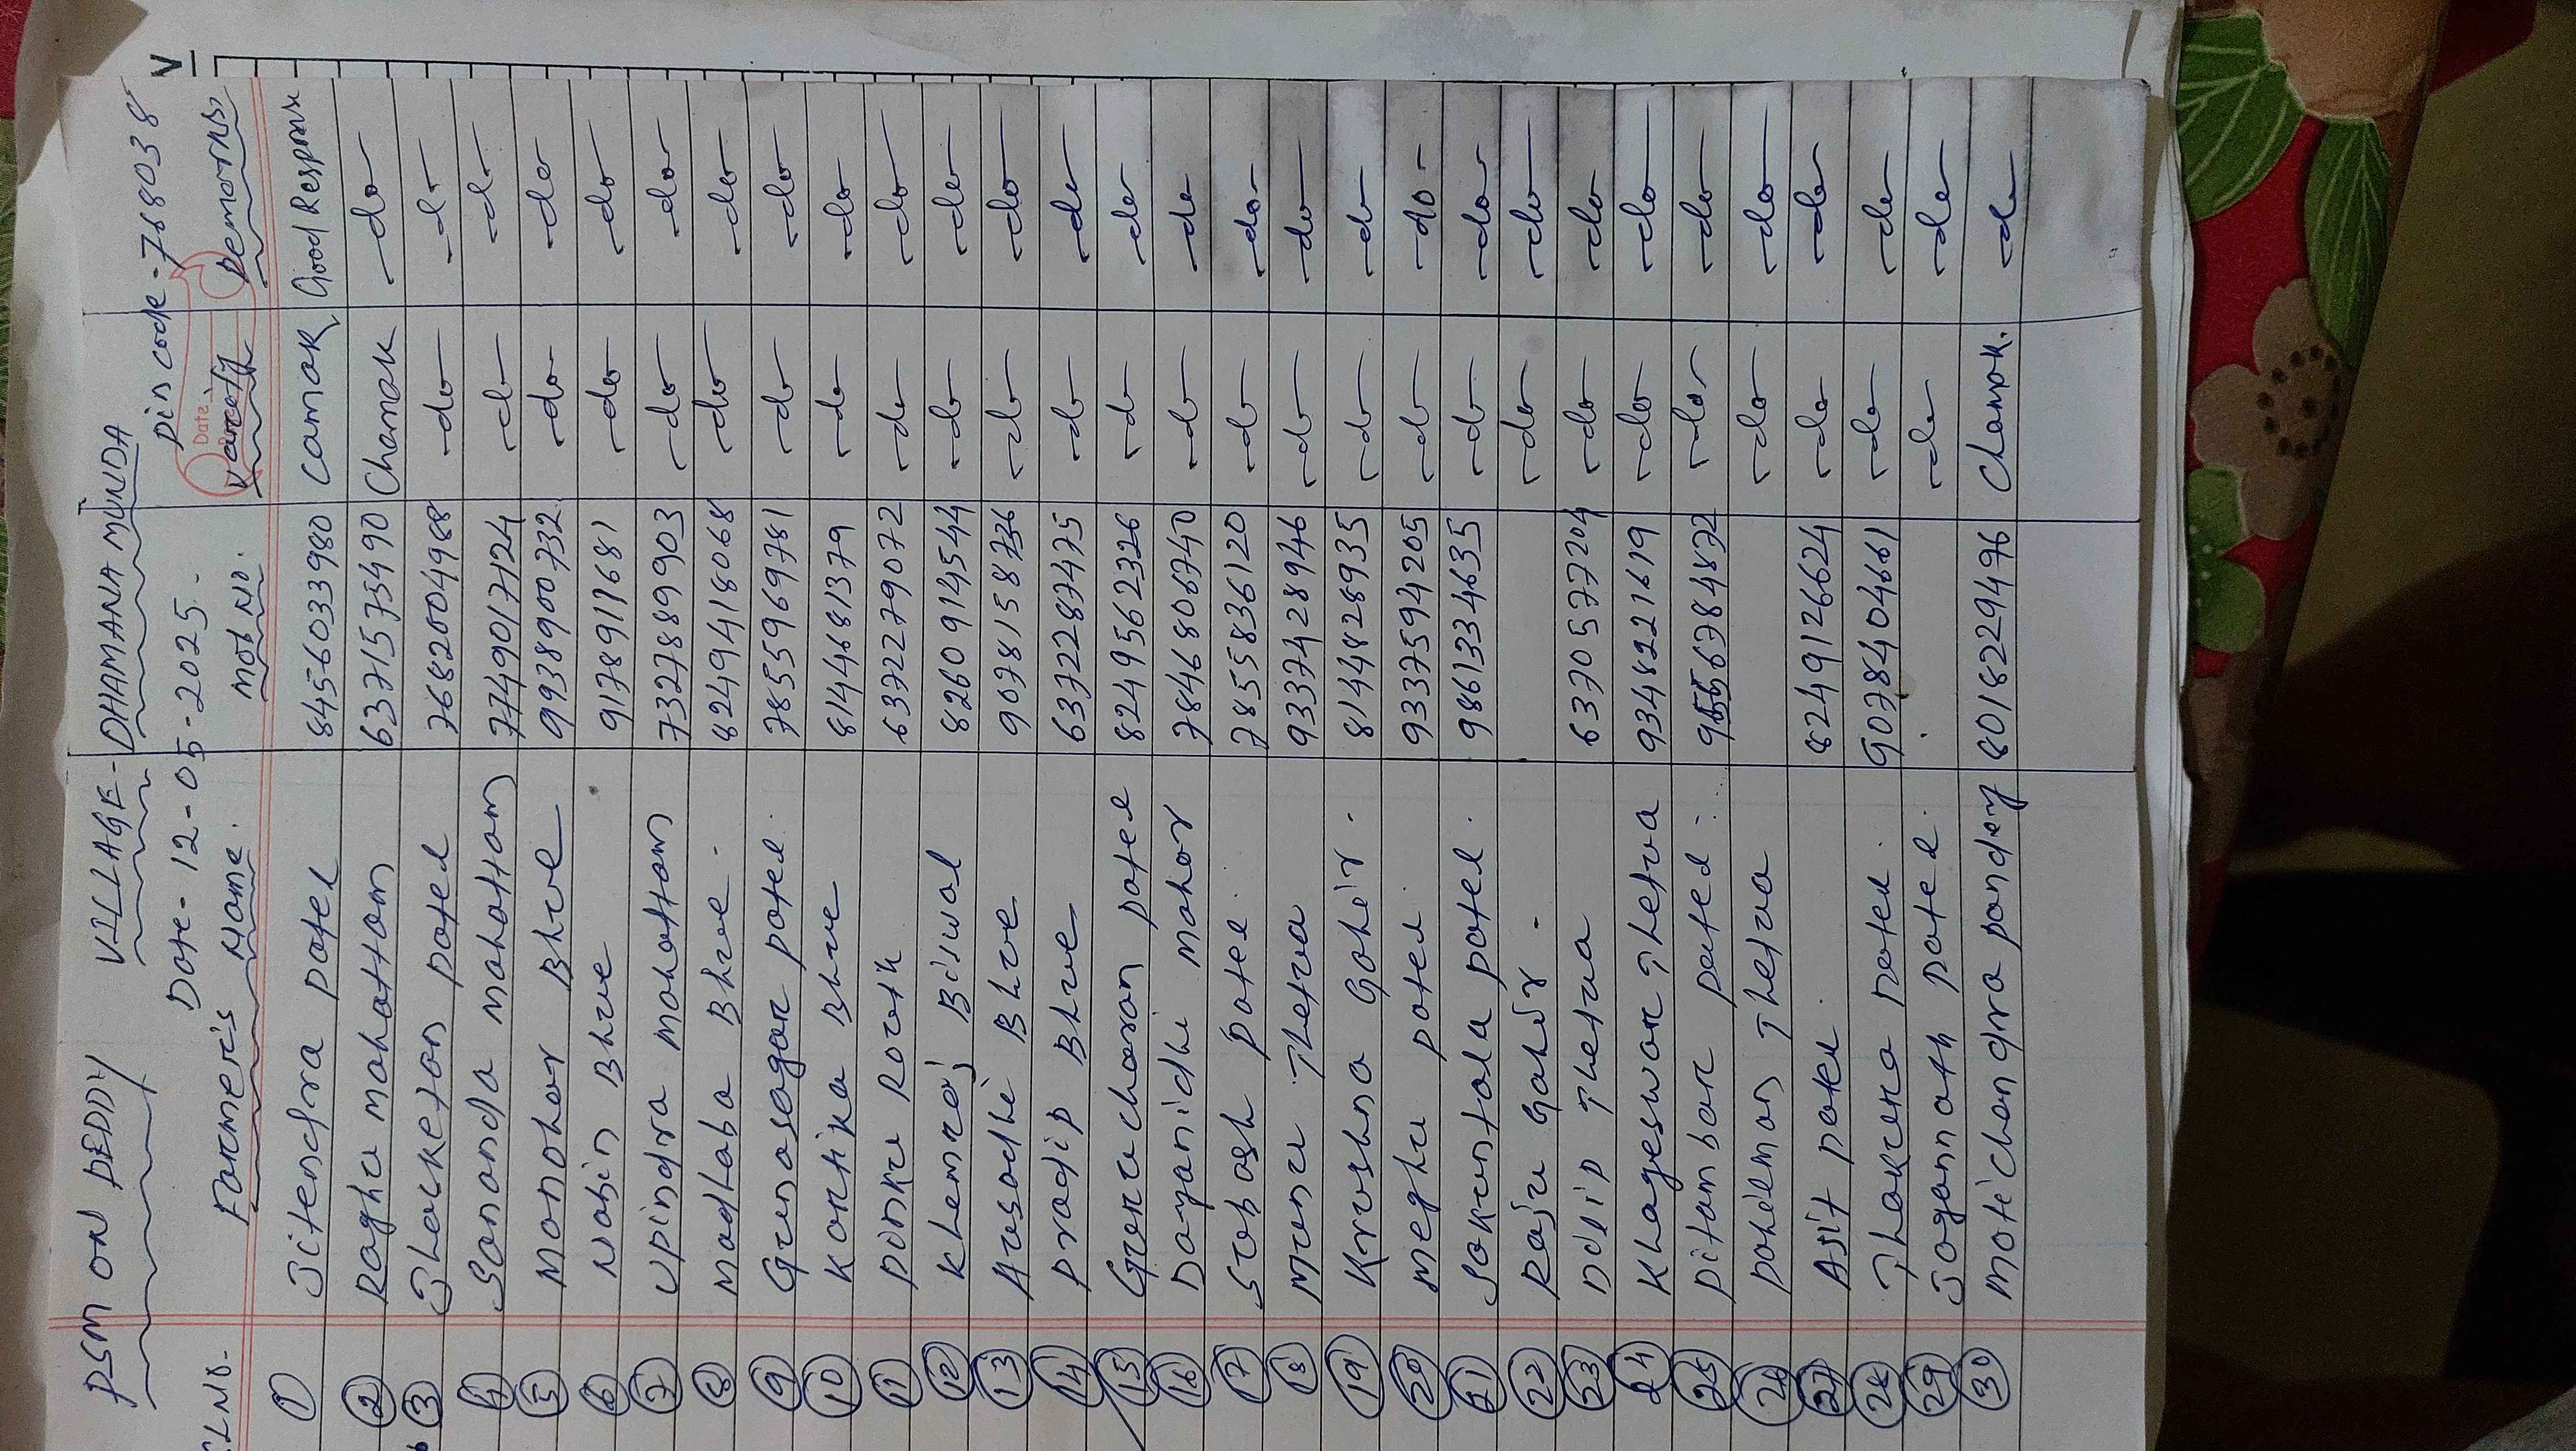 PSM ON PEDDY VILLAGE- DHAMANA MUNDA
Date- 12-05-2025. Pincode-768038
SLNO. Farmer's Name. Mob No. Date Varcity Remarks
1 Jitendra patel 8456033980 Camak Good Response
2 Raghu mahattam 6371573490 Chamak -do-
3 patel 7682004988 -do- -do-
4 Sananda mahattam 7749017124 -do- -do-
5 Manohar Bhue 9938900732 -do- -do-
6 Nabin Bhue 9178911681 -do- -do-
7 Upindra mahattam 7327889903 -do- -do-
8 Madhaba Bhue. 8249418068 -do- -do-
9 Gunasagar patel. 7855969781 -do- -do-
10 Kartika Bhue 8144681379 -do- -do-
11 Pinku Routh 6372279072 -do- -do-
12 Khemraj Biswal 8260914544 -do- -do-
13 Bhue 9078158736 -do- -do-
14 Pradip Bhue 6372287475 -do- -do-
15 Gurucharan patel 8249562326 -do- -do-
16 Dayanidhi mahar 7846806740 -do- -do-
17 Subash patel. 7855836120 -do- -do-
18 Munu Thetua 9337428946 -do- -do-
19 Krushna Gahir. 8144828935 -do- -do-
20 Meghu patel 9337594205 -do- -do-
21 Sakuntala patel. 9861334635 -do- -do-
22 Raju Gahir. -do- -do-
23 Dilip Thetua 6370577204 -do- -do-
24 Khageswar Thetua 9348221619 -do- -do-
25 Pitambar patel -do- -do-
26 Thetua -do- -do-
27 Asit patel. 8249126624 -do- -do-
28 patel. 9078404661 -do- -do-
29 Jagannath patel. -do- -do-
30 Motichandra pandey 8018229496 Chamak. -do-